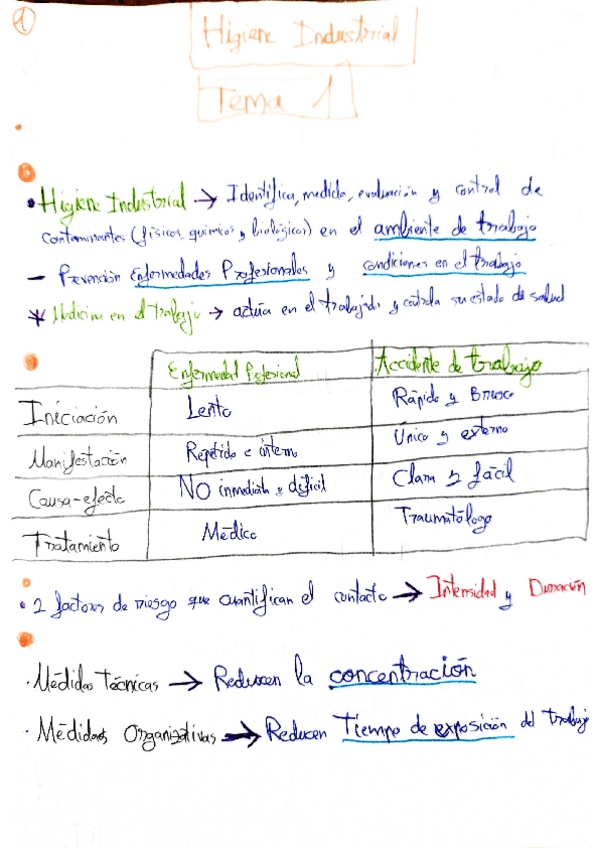 1
Higiene Industrial
Tema 1
• Higiene Industrial → Identifica, medida, evaluación y control de
Contaminantes (físicos, químicos y biológicos) en el ambiente de trabajo
– Prevención Enfermedades Profesionales y condiciones en el trabajo
* Medicina en el trabajo → actúa en el trabajador y controla su estado de salud
Enfermedad Profesional Accidente de trabajo
Iniciación Lento Rápido y Brusco
Manifestación Repetido e interno Único y externo
Causa-efecto NO inmediata y difícil Clara y fácil
Tratamiento Médico Traumatólogo
• 2 factores de riesgo que cuantifican el contacto → Intensidad y Duración
· Médidas Técnicas → Reducen la concentración
· Médidas Organizativas → Reducen Tiempo de exposición del trabaj